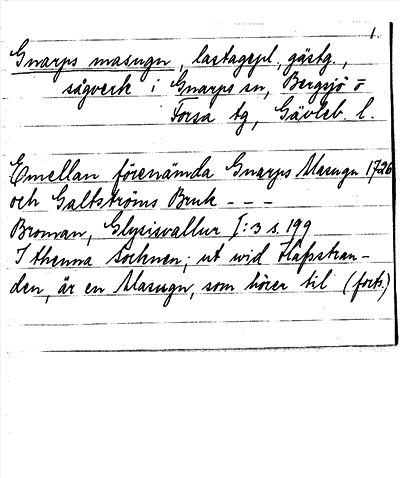 1.
Gnarps masugn, lastagepl., gästg.,
sågverk i Gnarps sn, Bergsjö o
Forsa tg, Gävleb. l.
Emellan förenämda Gnarps Masugn 1726
och Galtströms Bruk - - -
Broman, Glysisvallur I:3 s. 199
I thenna Sochnen; ut wid Hafsstran-
den, är en Masugn, som hörer til (forts.)